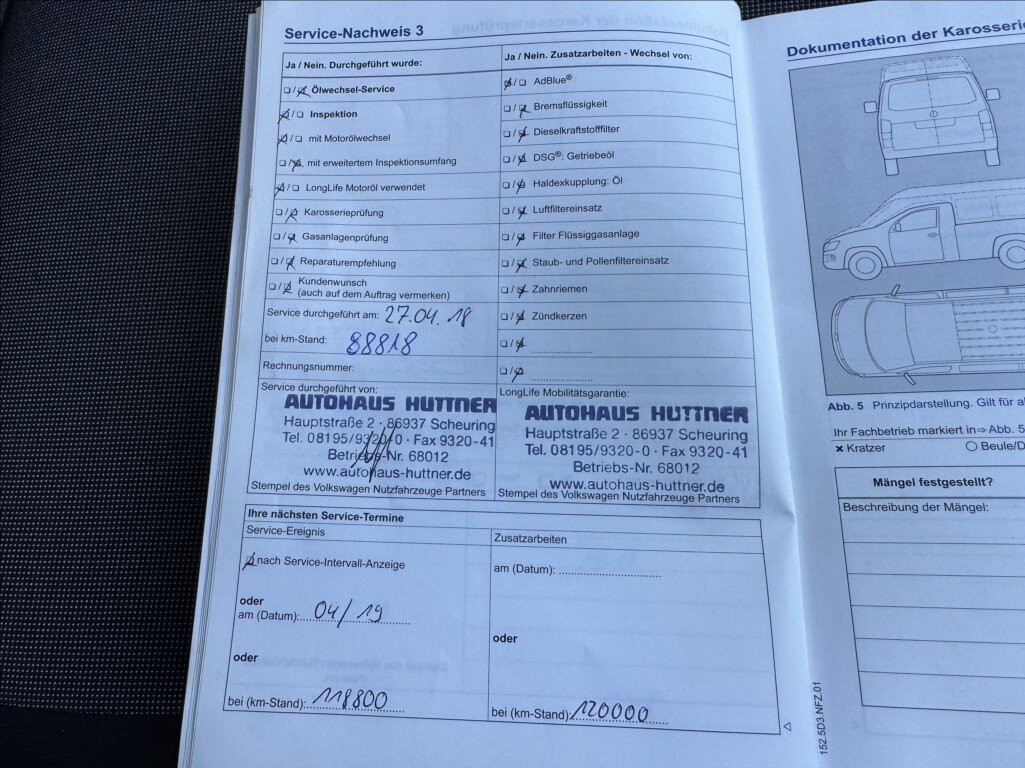 Service-Nachweis 3
Ja / Nein. Durchgeführt wurde:
Ölwechsel-Service
Inspektion
mit Motorölwechsel
mit erweitertem Inspektionsumfang
LongLife Motoröl verwendet
Karosserieprüfung
Gasanlagenprüfung
Reparaturempfehlung
Kundenwunsch
(auch auf dem Auftrag vermerken)
Service durchgeführt am: 27.04.18
bei km-Stand: 88818
Rechnungsnummer:
Service durchgeführt von:
AUTOHAUS HUTTNER
Hauptstraße 2 · 86937 Scheuring
Tel. 08195/9320-0 · Fax 9320-41
Betriebs-Nr. 68012
www.autohaus-huttner.de
Stempel des Volkswagen Nutzfahrzeuge Partners
Ja / Nein. Zusatzarbeiten - Wechsel von:
AdBlue®
Bremsflüssigkeit
Dieselkraftstofffilter
DSG®: Getriebeöl
Haldexkupplung: Öl
Luftfiltereinsatz
Filter Flüssiggasanlage
Staub- und Pollenfiltereinsatz
Zahnriemen
Zündkerzen
LongLife Mobilitätsgarantie:
AUTOHAUS HUTTNER
Hauptstraße 2 · 86937 Scheuring
Tel. 08195/9320-0 · Fax 9320-41
Betriebs-Nr. 68012
www.autohaus-huttner.de
Stempel des Volkswagen Nutzfahrzeuge Partners
Ihre nächsten Service-Termine
Service-Ereignis
nach Service-Intervall-Anzeige
oder
am (Datum): 04/19
oder
bei (km-Stand): 118800
Zusatzarbeiten
am (Datum):
oder
bei (km-Stand): 120000
152.5D3.NFZ.01
Dokumentation der Karosserie
Abb. 5 Prinzipdarstellung. Gilt für al
Ihr Fachbetrieb markiert in⇒ Abb. 5
Kratzer
Beule/D
Mängel festgestellt?
Beschreibung der Mängel: